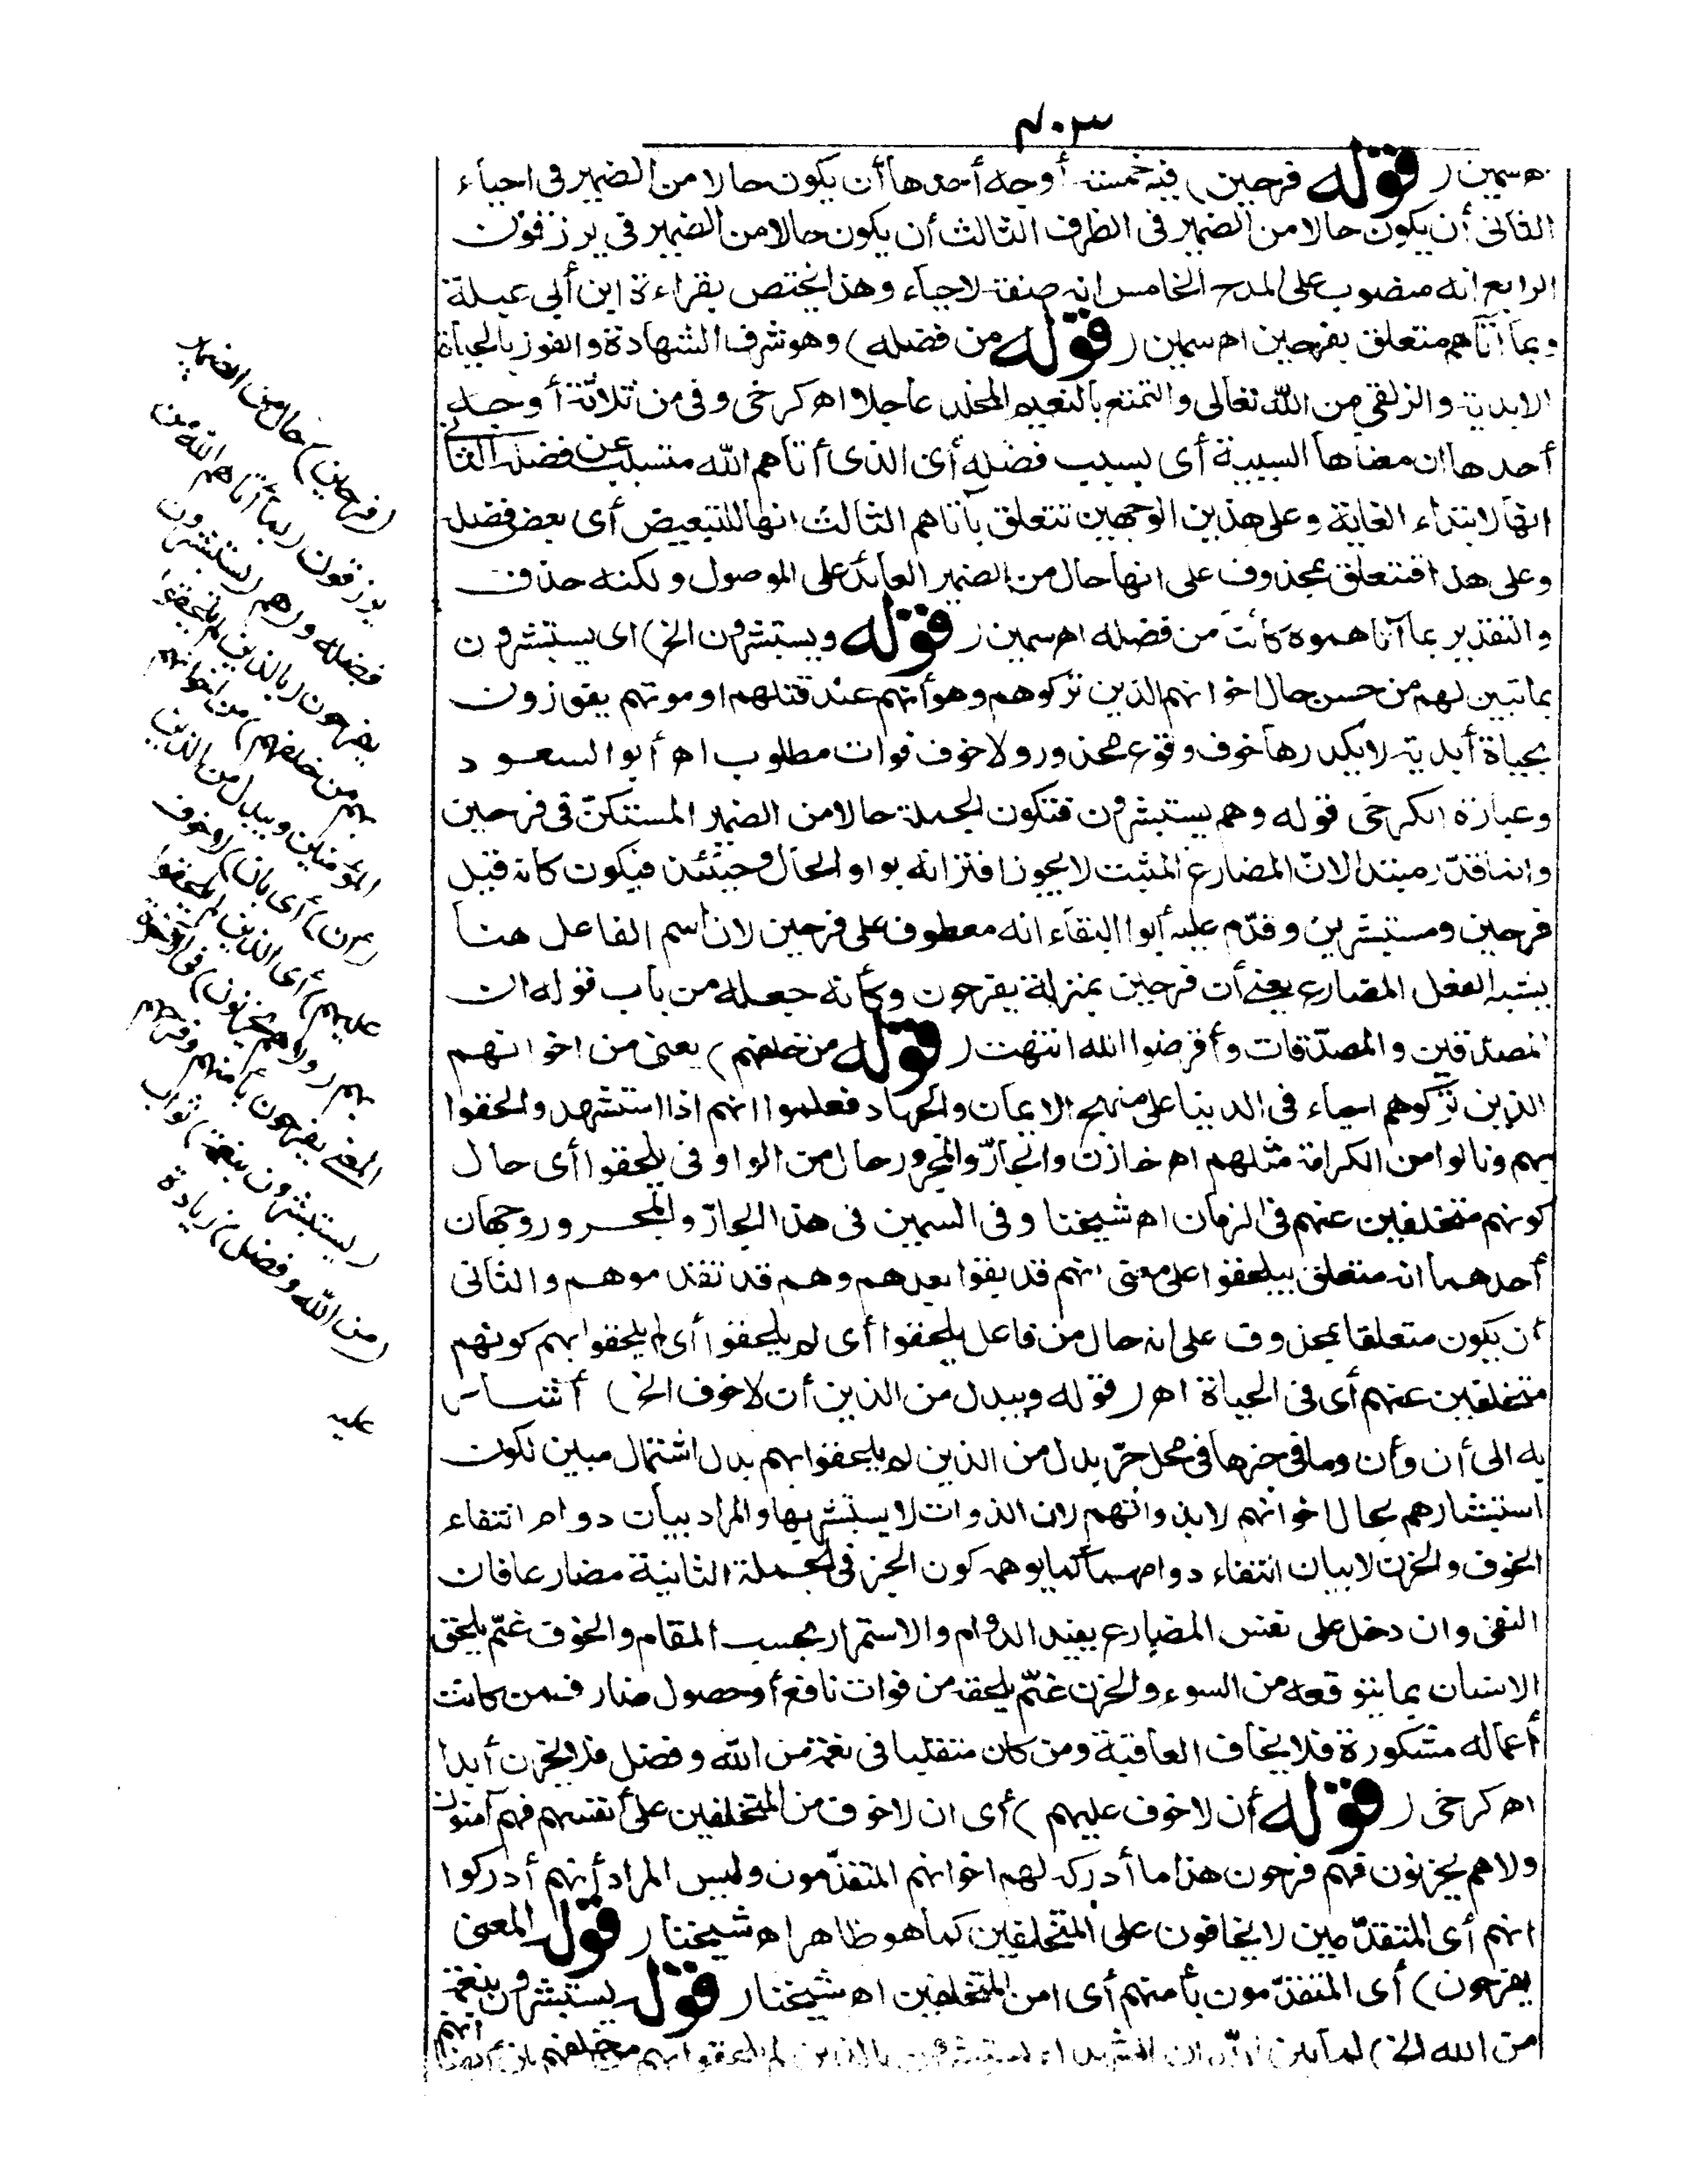 ٣٠٢
اه سمين (قوله فرحين) فيه خمسة أوجه أحدها أن يكون حالا من الضمير فى احياء
الثانى أن يكون حالا من الضمير فى الظرف الثالث أن يكون حالا من الضمير فى يرزقون
الرابع انه منصوب على المدح الخامس انه صفة لاحياء وهذا يختص بقراءة ابن أبى عبلة
وبما آتاهم متعلق بفرحين اه سمين (قوله من فضله) وهو شرف الشهادة والفوز بالحياة
الابدية والزلفى من الله تعالى والتمتع بالنعيم المخلد عاجلا اه كرخى وفى من ثلاثة أوجه
أحدها ان معناها السببية أى بسبب فضله أى الذى أتاهم الله متسبب عن فضله الثانى
انها لابتداء الغاية وعلى هذين الوجهين تتعلق بآتاهم الثالث انها للتبعيض أى بعض فضله
وعلى هذا فتتعلق بمحذوف على انها حال من الضمير العائد على الموصول ولكنه حذف
والتقدير بما آتاهموه كائنا من فضله اه سمين (قوله ويستبشرون الخ) اى يستبشرون
بما تبين لهم من حسن حال اخوانهم الذين تركوهم وهو أنهم عند قتلهم او موتهم يفوزون
بحياة أبدية لا يكدرها خوف وقوع محذور ولا خوف فوات مطلوب اه أبو السعود
وعبارة الكرخى قوله وهم يستبشرون فتكون الجملة حالا من الضمير المستكنّ فى فرحين
وانما قدّر مبتدا لانّ المضارع المثبت لا يجوز اقترانه بواو الحال وحينئذ فيكون كانه قيل
فرحين ومستبشرين وقدّم عليه أبوا البقاء انه معطوف على فرحين لان اسم الفاعل هنا
يشبه الفعل المضارع يعنى أن فرحين بمنزلة يفرحون وكأنه جعله من باب قوله ان
المصدّقين والمصدّقات وأقرضوا الله انتهت (قوله من خلفهم) يعنى من اخوانهم
الذين تركوهم احياء فى الدنيا على منهج الايمان والجهاد فعلموا انهم اذا استشهدوا لحقوا
بهم ونالوا من الكرامة مثلهم اه خازن والجارّ والمجرور حال من الواو فى يلحقوا أى حال
كونهم متخلفين عنهم فى الزمان اه شيخنا وفى السمين فى هذا الجارّ والمجرور وجهان
أحدهما انه متعلق بيلحقوا على معنى انهم قد بقوا بعدهم وهم قد تقدموهم والثانى
أن يكون متعلقا بمحذوف على انه حال من فاعل يلحقوا أى لم يلحقوا أى لم يلحقوا بهم كونهم
متخلفين عنهم أى فى الحياة اه (قوله ويبدل من الذين أن لا خوف الخ) أشار
به الى أن وأن وما فى حيزها فى محل جرّ بدل من الذين لم يلحقوا بهم بدل اشتمال مبين لكون
استبشارهم بحال اخوانهم لا بذواتهم لان الذوات لا يستبشر بها والمراد بيان دوام انتفاء
الخوف والحزن لا بيان انتفاء دوامهما كما يوهمه كون الخبر فى الجملة الثانية مضارعا فان
النفى وان دخل على نفس المضارع يفيد الدوام والاستمرار بحسب المقام والخوف غمّ يلحق
الانسان بما يتوقعه من السوء والحزن غمّ يلحقه من فوات نافع أو حصول ضار فمن كانت
أعماله مشكورة فلا يخاف العاقبة ومن كان متقلبا فى نعمة من الله وفضل فلا يحزن أبدا
اه كرخى (قوله أن لا خوف عليهم) أى ان لا خوف من المتخلفين على أنفسهم فهم آمنون
ولا هم يحزنون فهم فرحون هذا ما أدركه لهم اخوانهم المتقدّمون وليس المراد أنهم أدركوا
انهم أى المتقدّمين لا يخافون على المتخلفين كما هو ظاهر اه شيخنا (قوله المعنى
يفرحون) أى المتقدّمون بأمنهم أى امن المتخلفين اه شيخنا (قوله يستبشرون بنعمة
من الله الخ) لما بين الله ان الشهداء يستبشرون بالذين لم يلحقوا بهم من خلفهم بين أنهم أيضا
(فرحين) حال من الضمير
يرزقون (بما أتاهم الله من
فضله و) هم (يستبشرون)
يفرحون (بالذين لم يلحقوا
بهم من خلفهم) من اخوانهم
المؤمنين ويبدل من الذين
(أن) أى بان (لا خوف
عليهم) أى الذين لم يلحقوا
بهم (ولا هم يحزنون) فى الآخرة
المعنى يفرحون بأمنهم وفرحهم
(يستبشرون بنعمة) ثواب
(من الله وفضل) زيادة
عليه